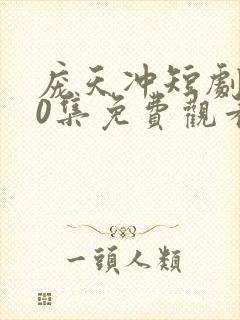 庞天冲短劇
0集免費觀看
一頭人類